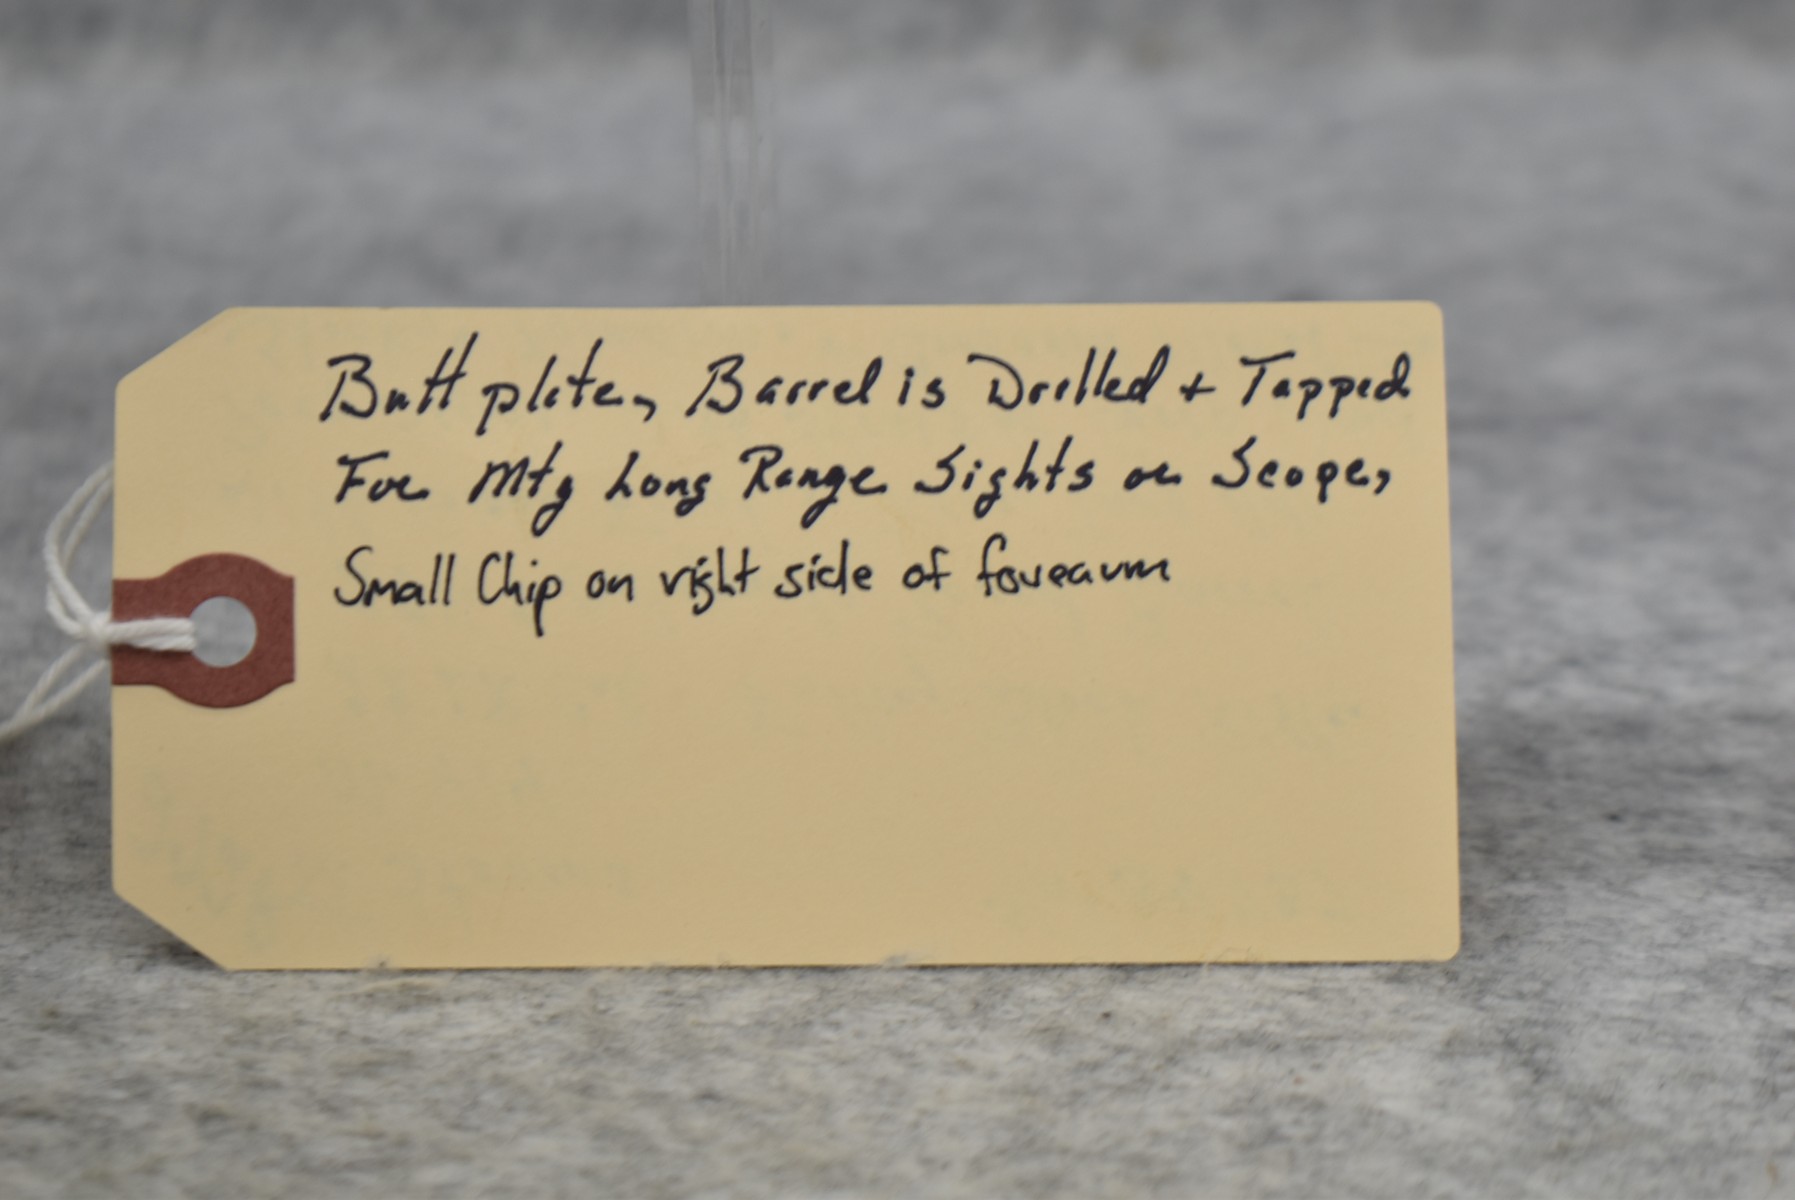 Butt plate, Barrel is Drilled + Tapped
For Mtg Long Range Sights or Scope,
Small Chip on right side of forearm